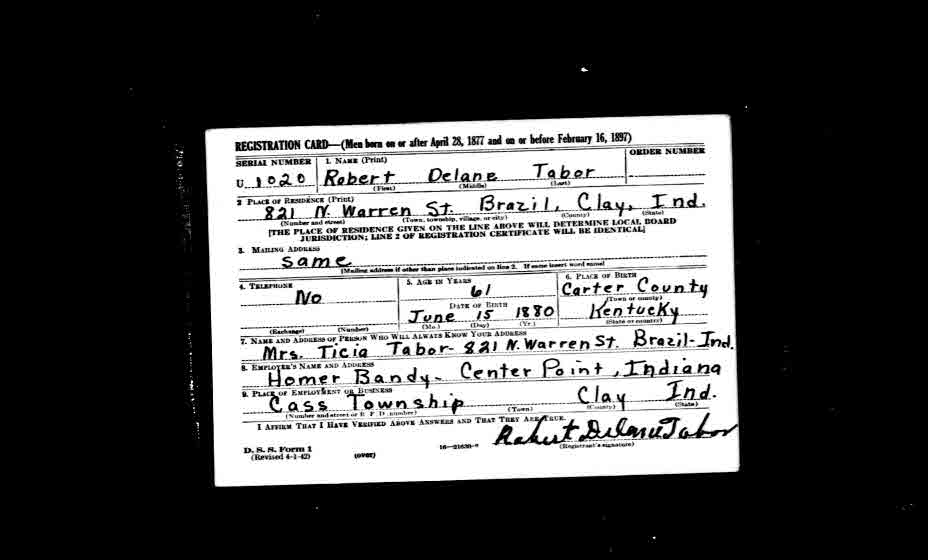 REGISTRATION CARD—(Men born on or after April 28, 1877 and on or before February 16, 1897)
SERIAL NUMBER 1. NAME (Print) ORDER NUMBER
U 1020 Robert Delane Tabor
(First) (Middle) (Last)
2 PLACE OF RESIDENCE (Print)
821 N. Warren St. Brazil, Clay, Ind.
(Number and street) (Town, township, village, or city) (County) (State)
[THE PLACE OF RESIDENCE GIVEN ON THE LINE ABOVE WILL DETERMINE LOCAL BOARD
JURISDICTION; LINE 2 OF REGISTRATION CERTIFICATE WILL BE IDENTICAL]
3. MAILING ADDRESS
same
[Mailing address if other than place indicated on line 2. If same insert word same]
4. TELEPHONE 5. AGE IN YEARS 6. PLACE OF BIRTH
No 61 Carter County
DATE OF BIRTH (Town or county)
June 15 1880 Kentucky
(Exchange) (Number) (Mo.) (Day) (Yr.) (State or country)
7. NAME AND ADDRESS OF PERSON WHO WILL ALWAYS KNOW YOUR ADDRESS
Mrs. Ticia Tabor- 821 N. Warren St. Brazil-Ind.
8. EMPLOYER'S NAME AND ADDRESS
Homer Bandy- Center Point, Indiana
9. PLACE OF EMPLOYMENT OR BUSINESS
Cass Township Clay Ind.
(Number and street or R. F. D. number) (Town) (County) (State)
I AFFIRM THAT I HAVE VERIFIED ABOVE ANSWERS AND THAT THEY ARE TRUE.
Robert Delane Tabor
D. S. S. Form 1 16—21630-2 (Registrant's signature)
(Revised 4-1-42) (over)